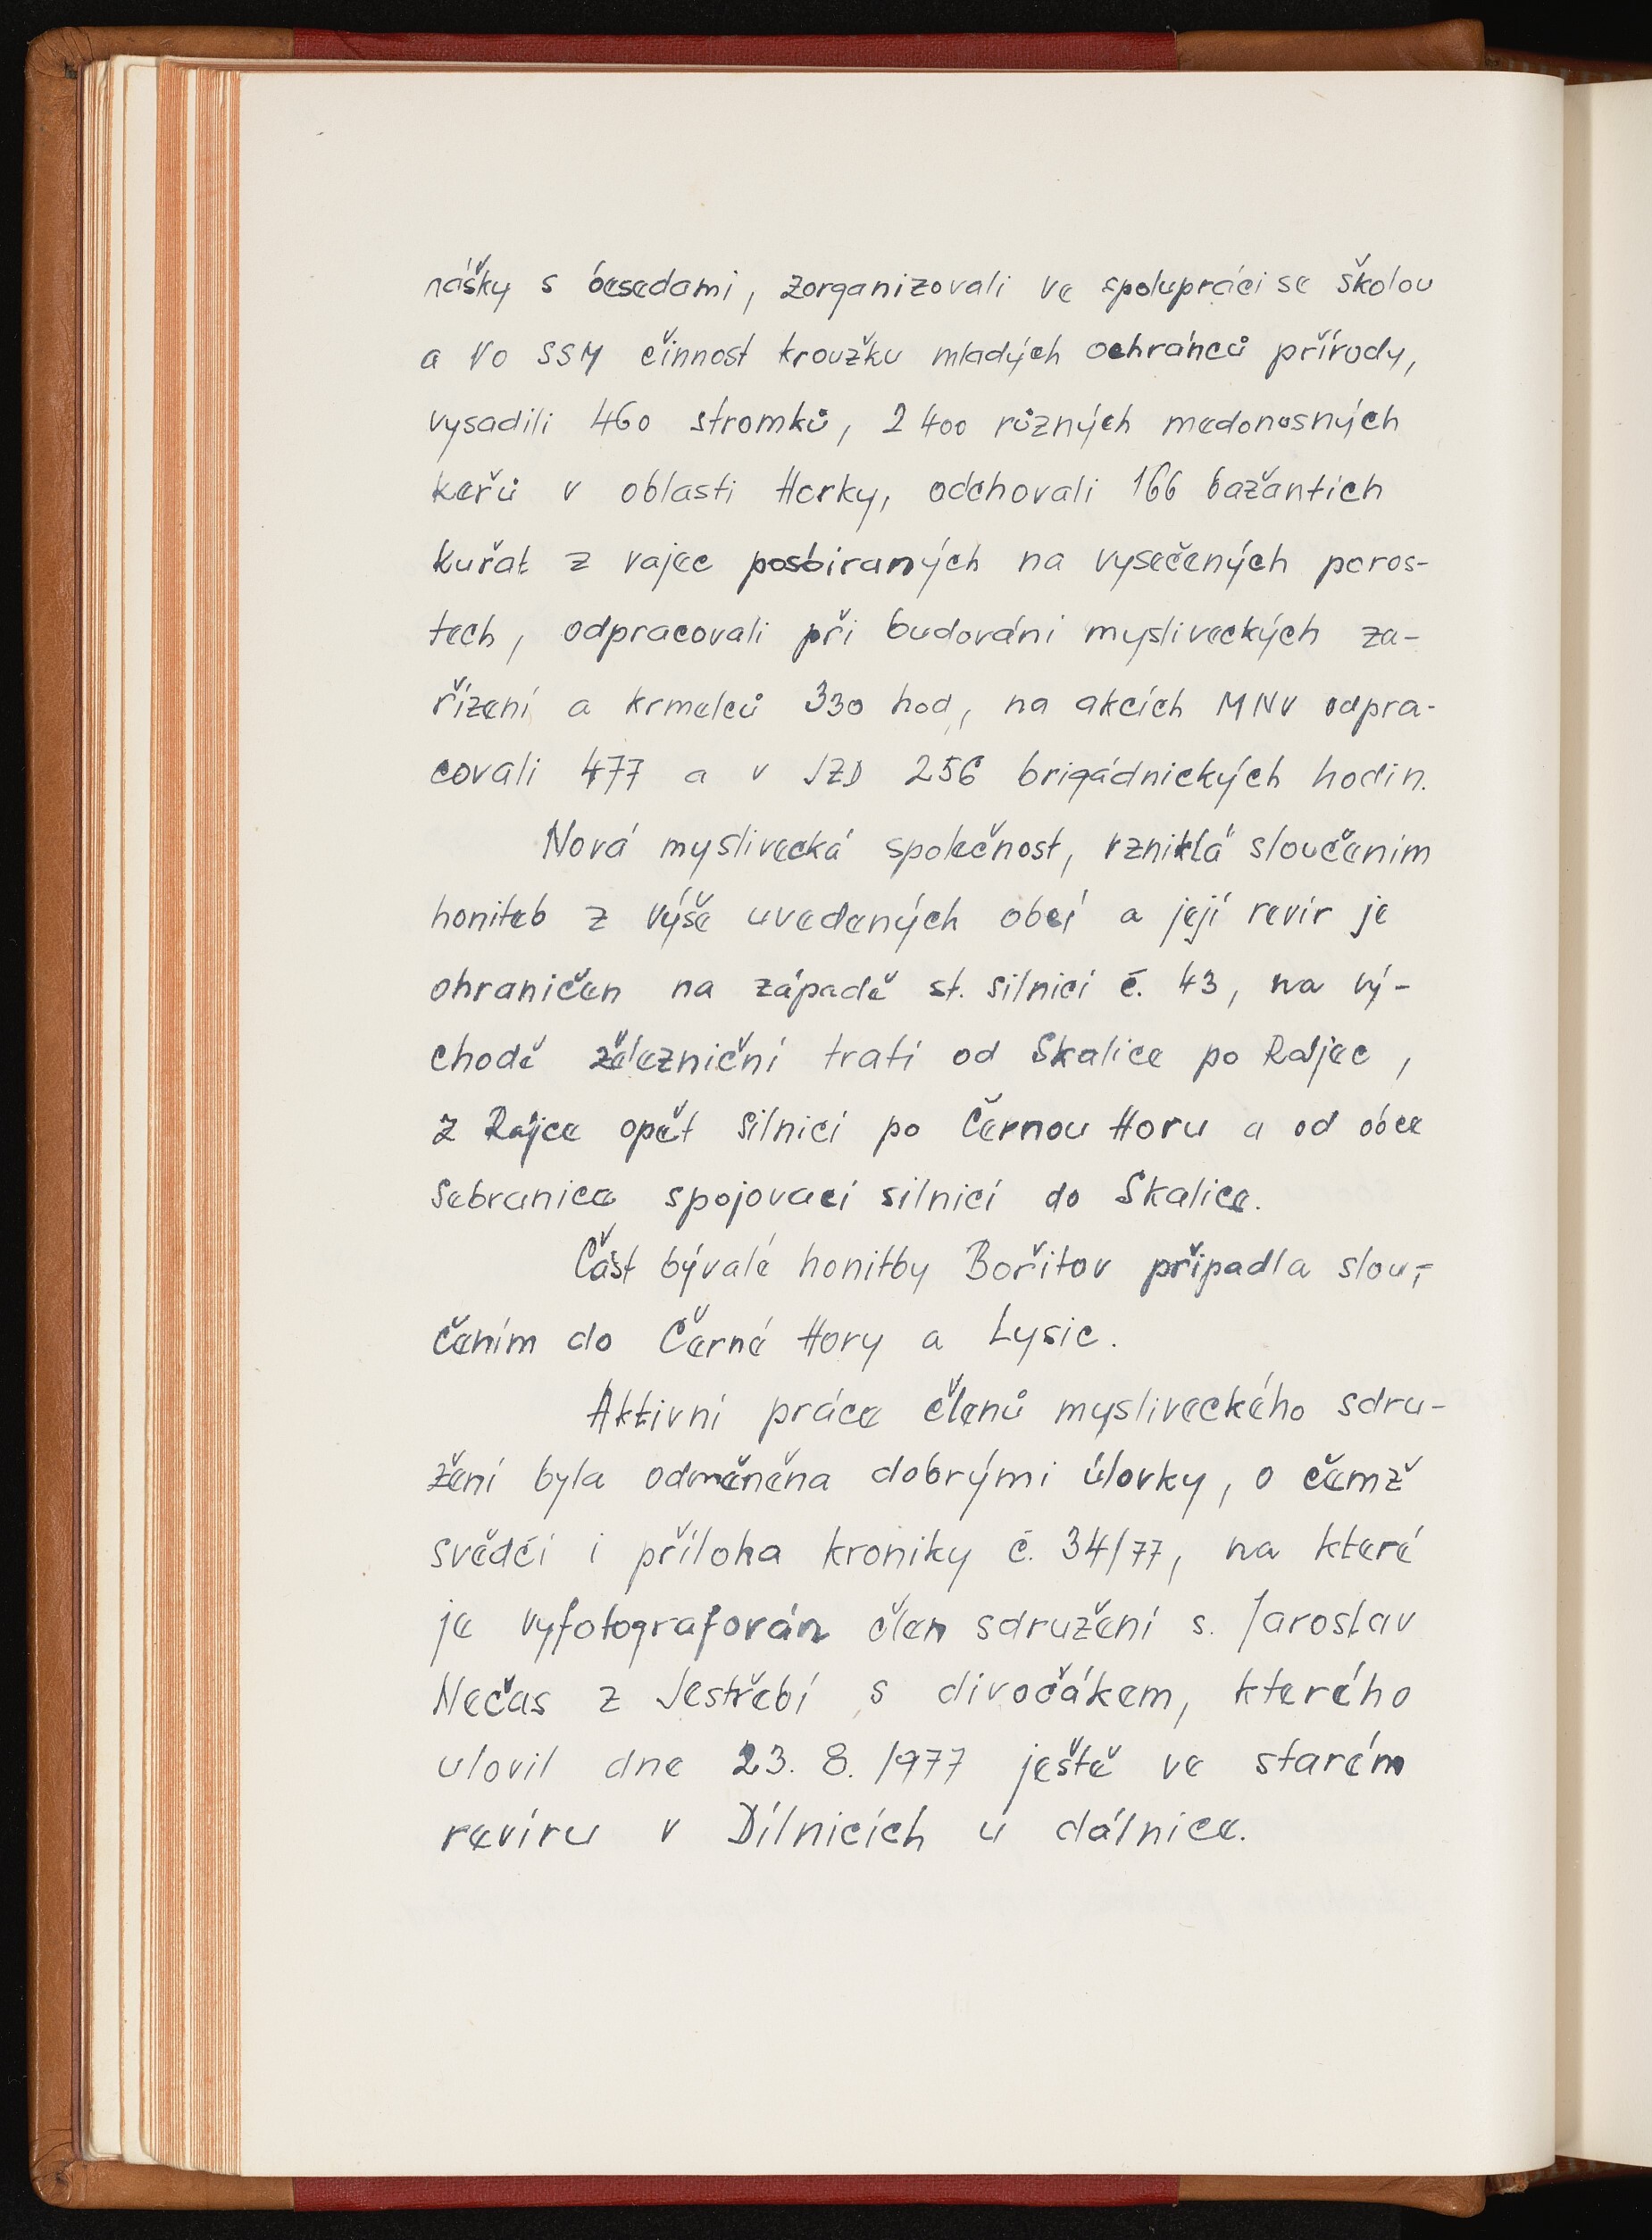 nášky s besedami, zorganizovali ve spolupráci se školou
a VO SSM činnost kroužku mladých ochránců přírody,
vysadili 460 stromků, 2 400 různých medonosných
keřů v oblasti Horky, odchovali 166 bažantích
kuřat z vajec posbíraných na vysečených poros-
tech, odpracovali při budování mysliveckých za-
řízení a krmelců 330 hod, na akcích MNV odpra-
covali 477 a v JZD 256 brigádnických hodin.
Nová myslivecká společnost, vzniklá sloučením
honiteb z výše uvedených obcí a její revír je
ohraničen na západě st. silnicí č. 43, na vý-
chodě železniční tratí od Skalice po Rájec,
z Rájce opět silnicí po Černou Horu a od obce
Sebranice spojovací silnicí do Skalice.
Část bývalé honitby Bořitov připadla slou-
čením do Černé Hory a Lysic.
Aktivní práce členů mysliveckého sdru-
žení byla odměněna dobrými úlovky, o čemž
svědčí i příloha kroniky č. 34/77, na které
je vyfotografován člen sdružení s. Jaroslav
Nečas z Jestřebí s divočákem, kterého
ulovil dne 23. 8. 1977 ještě ve starém
revíru v Dílnicích u dálnice.